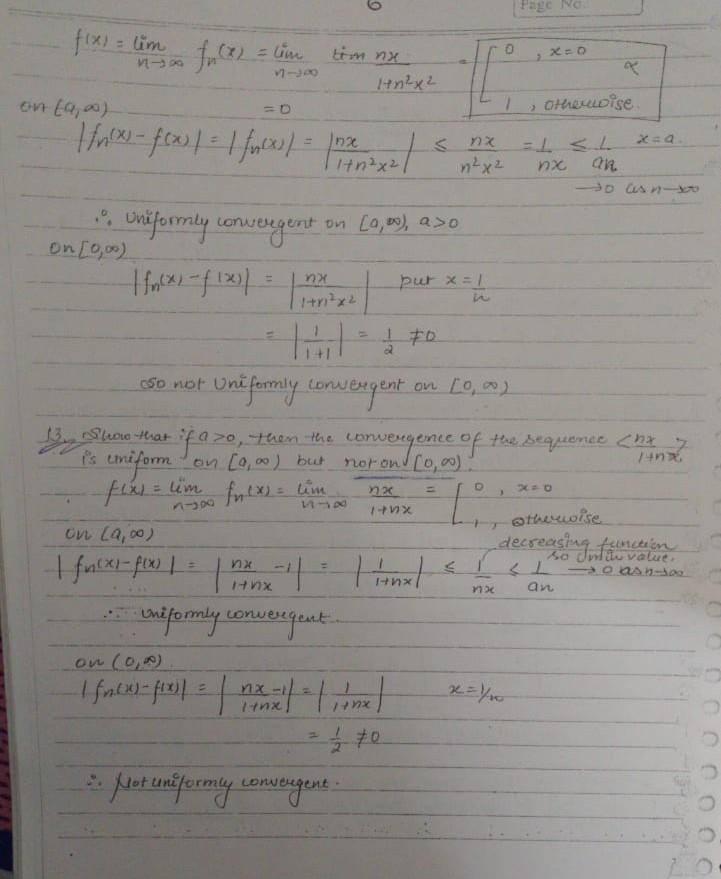 6
Page No.
f(x) = lim n→∞ fn(x) = lim n→∞ nx/(1+n²x²) = [ 0 , x=0
1 , otherwise.
on [a,∞) = 0
|fn(x) - f(x)| = |fn(x)| = |nx/(1+n²x²)| ≤ nx/n²x² = 1/nx ≤ 1/an x=a.
→0 as n→∞
∴ Uniformly convergent on [a,∞), a>0
on [0,∞)
|fn(x) - f(x)| = |nx/(1+n²x²)| put x = 1/n
= |1/(1+1)| = 1/2 ≠0
so not Uniformly convergent on [0,∞)
13. Show that if a>0, then the convergence of the sequence <nx/(1+nx)>
is uniform on [a,∞) but not on [0,∞).
f(x) = lim n→∞ fn(x) = lim n→∞ nx/(1+nx) = [ 0 , x=0
1, otherwise
on [a,∞)
decreasing function
so min value.
|fn(x) - f(x)| = |nx/(1+nx) - 1| = |1/(1+nx)| ≤ 1/nx ≤ 1/an →0 as n→∞
∴ uniformly convergent.
on (0,∞)
|fn(x) - f(x)| = |nx/(1+nx) - 1| = |1/(1+nx)| x = 1/n
= 1/2 ≠0
∴ Not uniformly convergent.